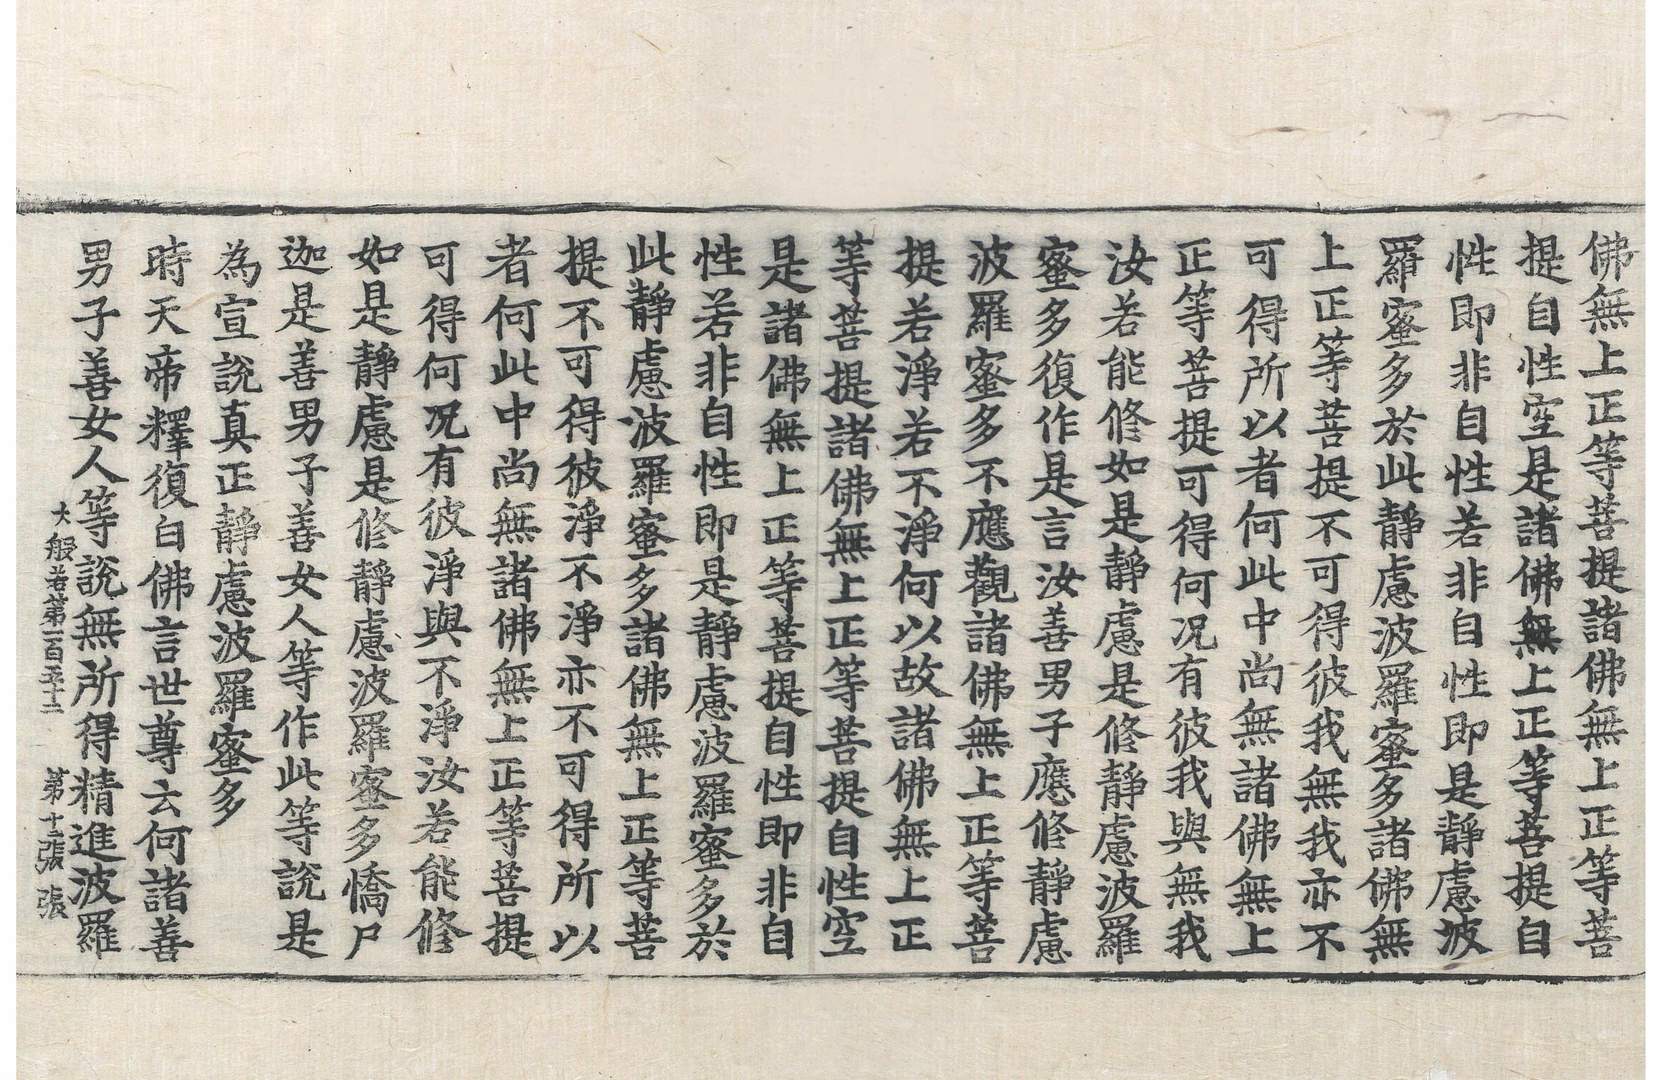 佛無上正等菩提諸佛無上正等菩
提自性空是諸佛無上正等菩提自
性即非自性若非自性即是靜慮波
羅蜜多於此靜慮波羅蜜多諸佛無
上正等菩提不可得彼我無我亦不
可得所以者何此中尚無諸佛無上
正等菩提可得何况有彼我與無我
汝若能修如是靜慮是修靜慮波羅
蜜多復作是言汝善男子應修靜慮
波羅蜜多不應觀諸佛無上正等菩
提若淨若不淨何以故諸佛無上正
等菩提諸佛無上正等菩提自性空
是諸佛無上正等菩提自性即非自
性若非自性即是靜慮波羅蜜多於
此靜慮波羅蜜多諸佛無上正等菩
提不可得彼淨不淨亦不可得所以
者何此中尚無諸佛無上正等菩提
可得何况有彼淨與不淨汝若能修
如是靜慮是修靜慮波羅蜜多憍尸
迦是善男子善女人等作此等說是
為宣說真正靜慮波羅蜜多
時天帝釋復白佛言世尊云何諸善
男子善女人等說無所得精進波羅
大般若第一百五十二 第十二張 張